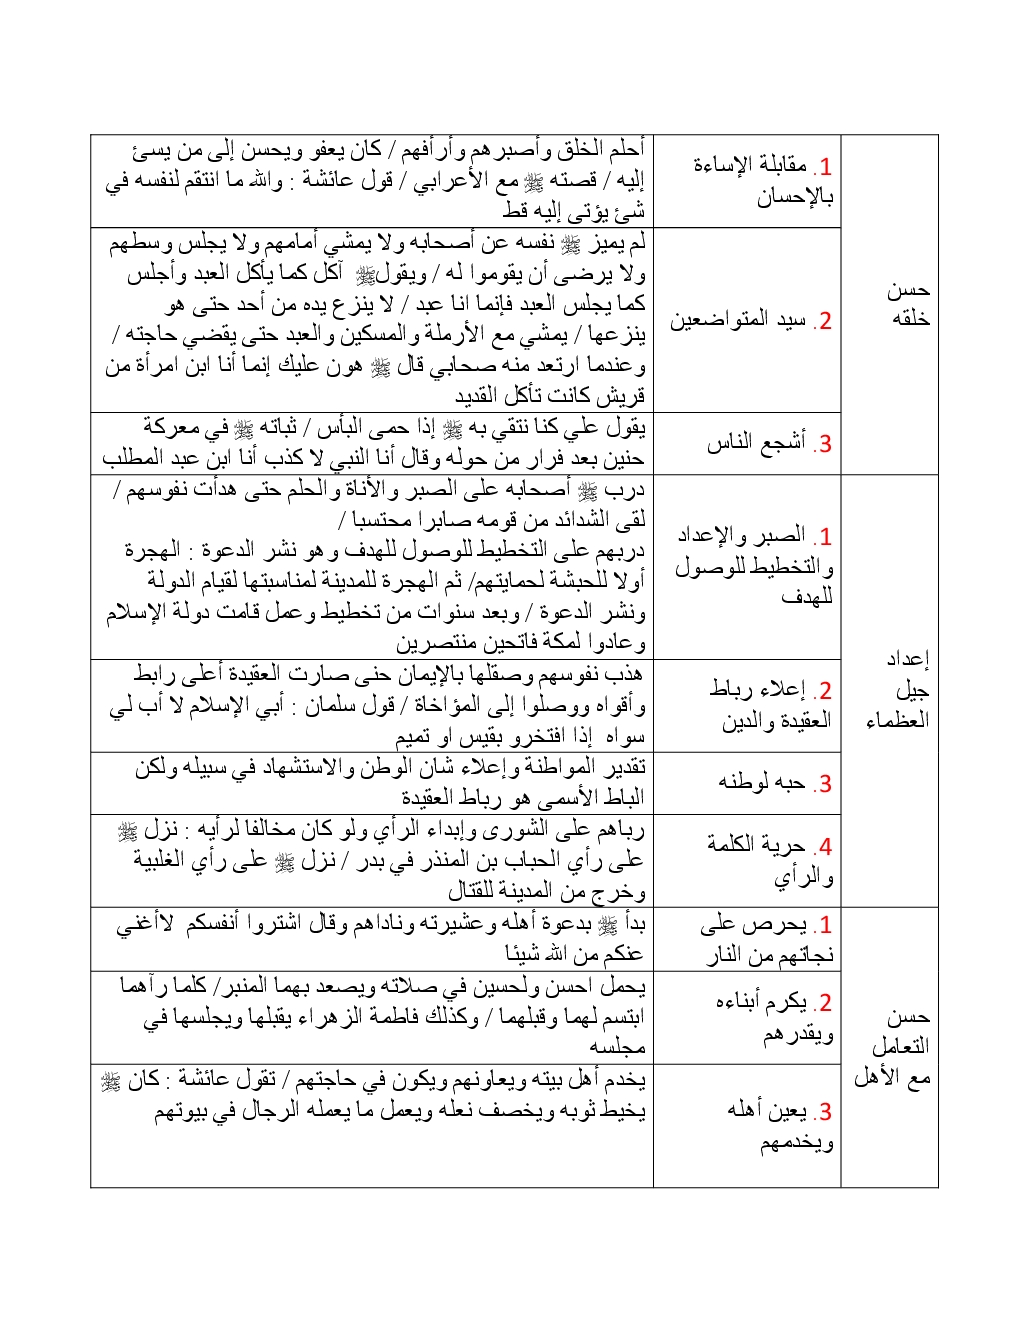 حسن
خلقه
1. مقابلة الإساءة
بالإحسان
أحلم الخلق وأصبرهم وأرأفهم / كان يعفو ويحسن إلى من يسئ
إليه / قصته ﷺ مع الأعرابي / قول عائشة : والله ما انتقم لنفسه في
شئ يؤتى إليه قط
2. سيد المتواضعين
لم يميز ﷺ نفسه عن أصحابه ولا يمشي أمامهم ولا يجلس وسطهم
ولا يرضى أن يقوموا له / ويقولﷺ آكل كما يأكل العبد وأجلس
كما يجلس العبد فإنما انا عبد / لا ينزع يده من أحد حتى هو
ينزعها / يمشي مع الأرملة والمسكين والعبد حتى يقضي حاجته /
وعندما ارتعد منه صحابي قال ﷺ هون عليك إنما أنا ابن امرأة من
قريش كانت تأكل القديد
3. أشجع الناس
يقول علي كنا نتقي به ﷺ إذا حمى البأس / ثباته ﷺ في معركة
حنين بعد فرار من حوله وقال أنا النبي لا كذب أنا ابن عبد المطلب
إعداد
جيل
العظماء
1. الصبر والإعداد
والتخطيط للوصول
للهدف
درب ﷺ أصحابه على الصبر والأناة والحلم حتى هدأت نفوسهم /
لقى الشدائد من قومه صابرا محتسبا /
دربهم على التخطيط للوصول للهدف وهو نشر الدعوة : الهجرة
أولا للحبشة لحمايتهم/ ثم الهجرة للمدينة لمناسبتها لقيام الدولة
ونشر الدعوة / وبعد سنوات من تخطيط وعمل قامت دولة الإسلام
وعادوا لمكة فاتحين منتصرين
2. إعلاء رباط
العقيدة والدين
هذب نفوسهم وصقلها بالإيمان حنى صارت العقيدة أعلى رابط
وأقواه ووصلوا إلى المؤاخاة / قول سلمان : أبي الإسلام لا أب لي
سواه إذا افتخرو بقيس او تميم
3. حبه لوطنه
تقدير المواطنة وإعلاء شان الوطن والاستشهاد في سبيله ولكن
الباط الأسمى هو رباط العقيدة
4. حرية الكلمة
والرأي
رباهم على الشورى وإبداء الرأي ولو كان مخالفا لرأيه : نزل ﷺ
على رأي الحباب بن المنذر في بدر / نزل ﷺ على رأي الغلبية
وخرج من المدينة للقتال
حسن
التعامل
مع الأهل
1. يحرص على
نجاتهم من النار
بدأ ﷺ بدعوة أهله وعشيرته وناداهم وقال اشتروا أنفسكم لاأغني
عنكم من الله شيئا
2. يكرم أبناءه
ويقدرهم
يحمل احسن ولحسين في صلاته ويصعد بهما المنبر/ كلما رآهما
ابتسم لهما وقبلهما / وكذلك فاطمة الزهراء يقبلها ويجلسها في
مجلسه
3. يعين أهله
ويخدمهم
يخدم أهل بيته ويعاونهم ويكون في حاجتهم / تقول عائشة : كان ﷺ
يخيط ثوبه ويخصف نعله ويعمل ما يعمله الرجال في بيوتهم